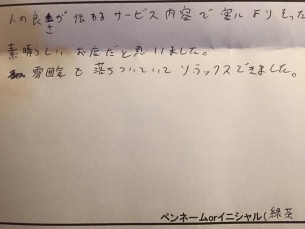 人の良さが伝わるサービス内容で
素晴らしいお店だと思いました。
雰囲気も落ちついていてリラックスできました。
ペンネームorイニシャル(緑茶